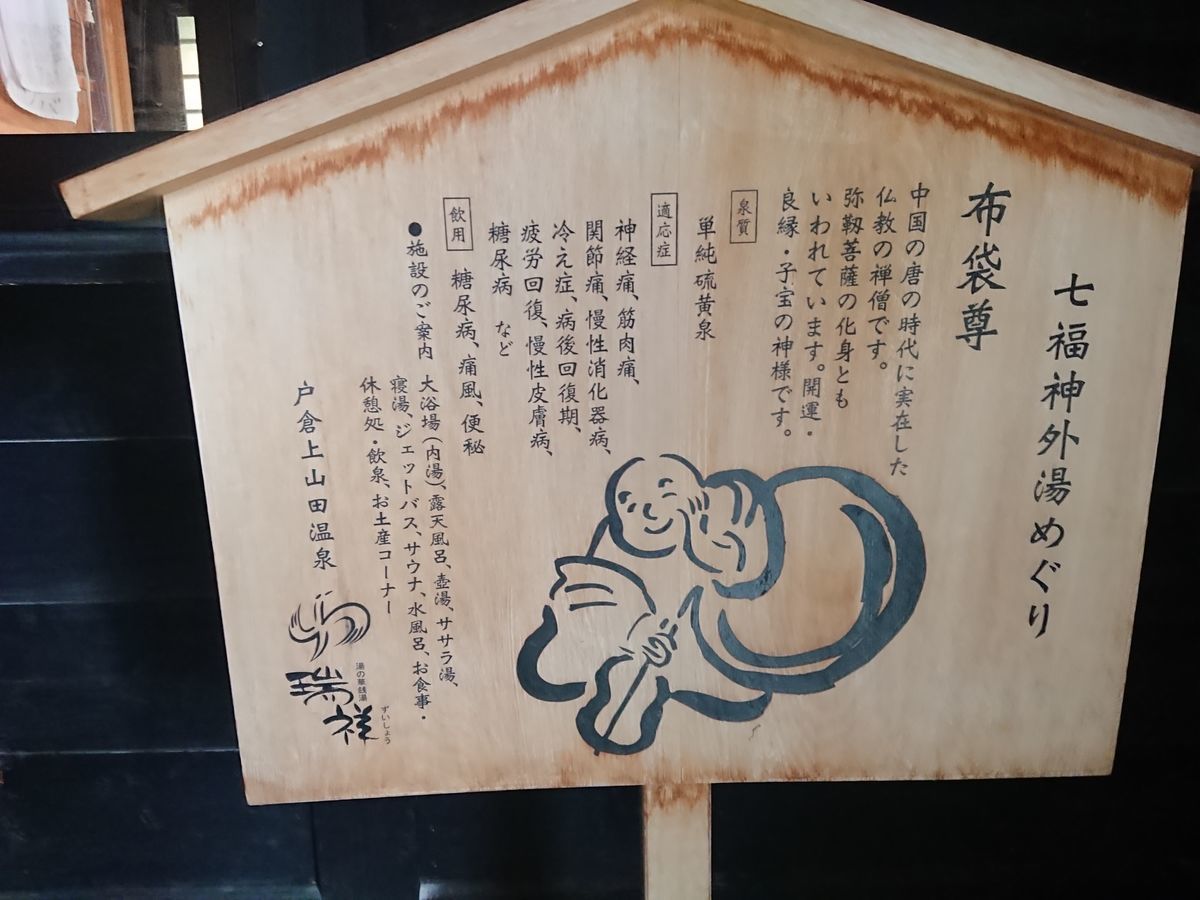 七福神外湯めぐり
布袋尊
中国の唐の時代に実在した
仏教の禅僧です。
弥靱菩薩の化身とも
いわれています。開運・
良縁・子宝の神様です。
泉質
単純硫黄泉
適応症
神経痛、筋肉痛、
関節痛、慢性消化器病、
冷え症、病後回復期、
疲労回復、慢性皮膚病、
糖尿病 など
飲用
糖尿病、痛風、便秘
●施設のご案内
大浴場(内湯)、露天風呂、壺湯、ササラ湯、
寝湯、ジェットバス、サウナ、水風呂、お食事・
休憩処・飲泉、お土産コーナー
戸倉上山田温泉
湯の華銭湯
瑞祥
ずいしょう